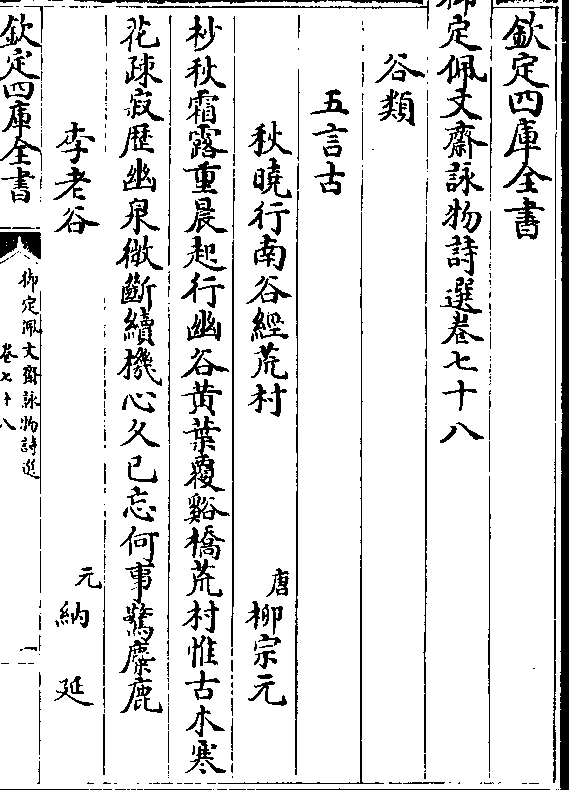 欽定四庫全書
御定佩文齋詠物詩選卷七十八
谷類
五言古
秋曉行南谷經荒村 唐 柳宗元
杪秋霜露重晨起行幽谷黄葉覆谿橋荒村惟古木寒
花疎寂歴幽泉微斷續機心久已忘何事驚麋鹿
李老谷 元 納延
欽定四庫全書
御定佩文齋詠物詩選
卷七十八
一